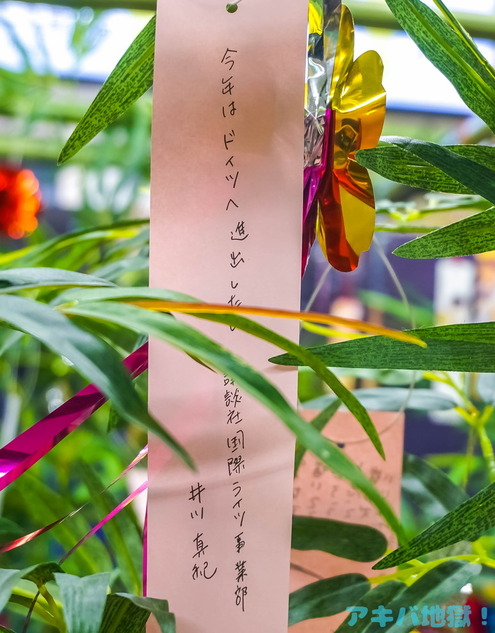 今年はドイツへ進出したい
談社国際ライツ事業部
井川真紀
アキバ地獄！